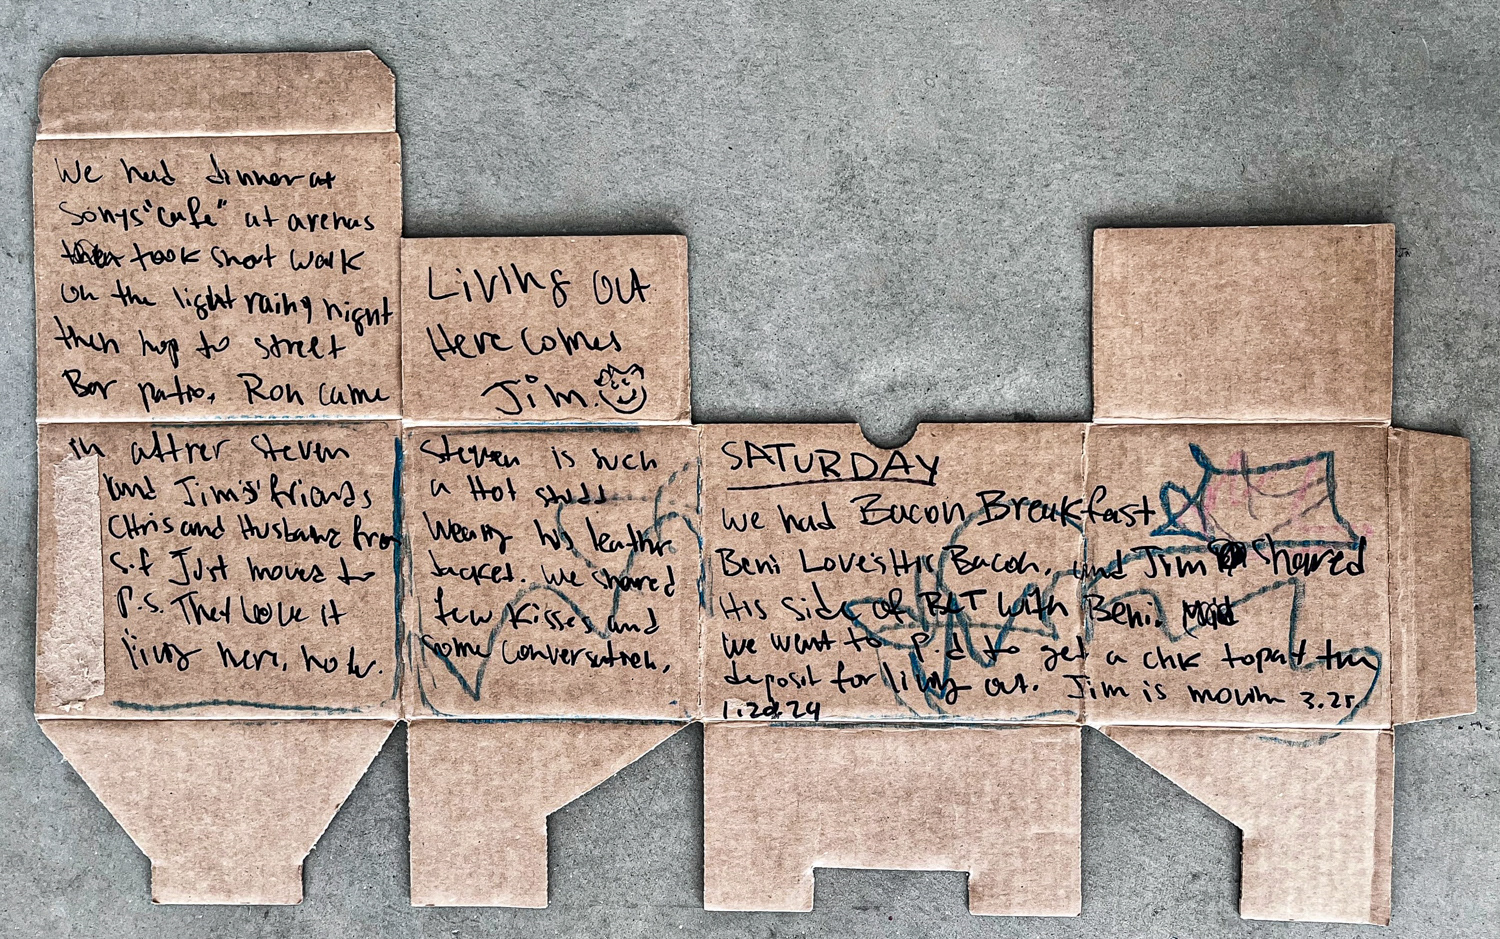 We had dinner at
Sonys "cafe" at arenas
took short walk
on the light rainy night
then hop to street
Bar patio. Ron came
in aftrer Steven
and Jim's friends
Chris and Husband from
S.f Just moved to
P.S. They Love it
living here, now.
Living Out
Here Comes
Jim.
Steven is such
a Hot studd
wearing his leather
Jacket. we shared
few Kisses and
some conversation.
SATURDAY
we had Bacon Breakfast
Beni Loves His Bacon. and Jim shared
His side of BLT with Beni.
we went to P.d to get a chk to pay the
deposit for living out. Jim is movin 3.25
1.20.24